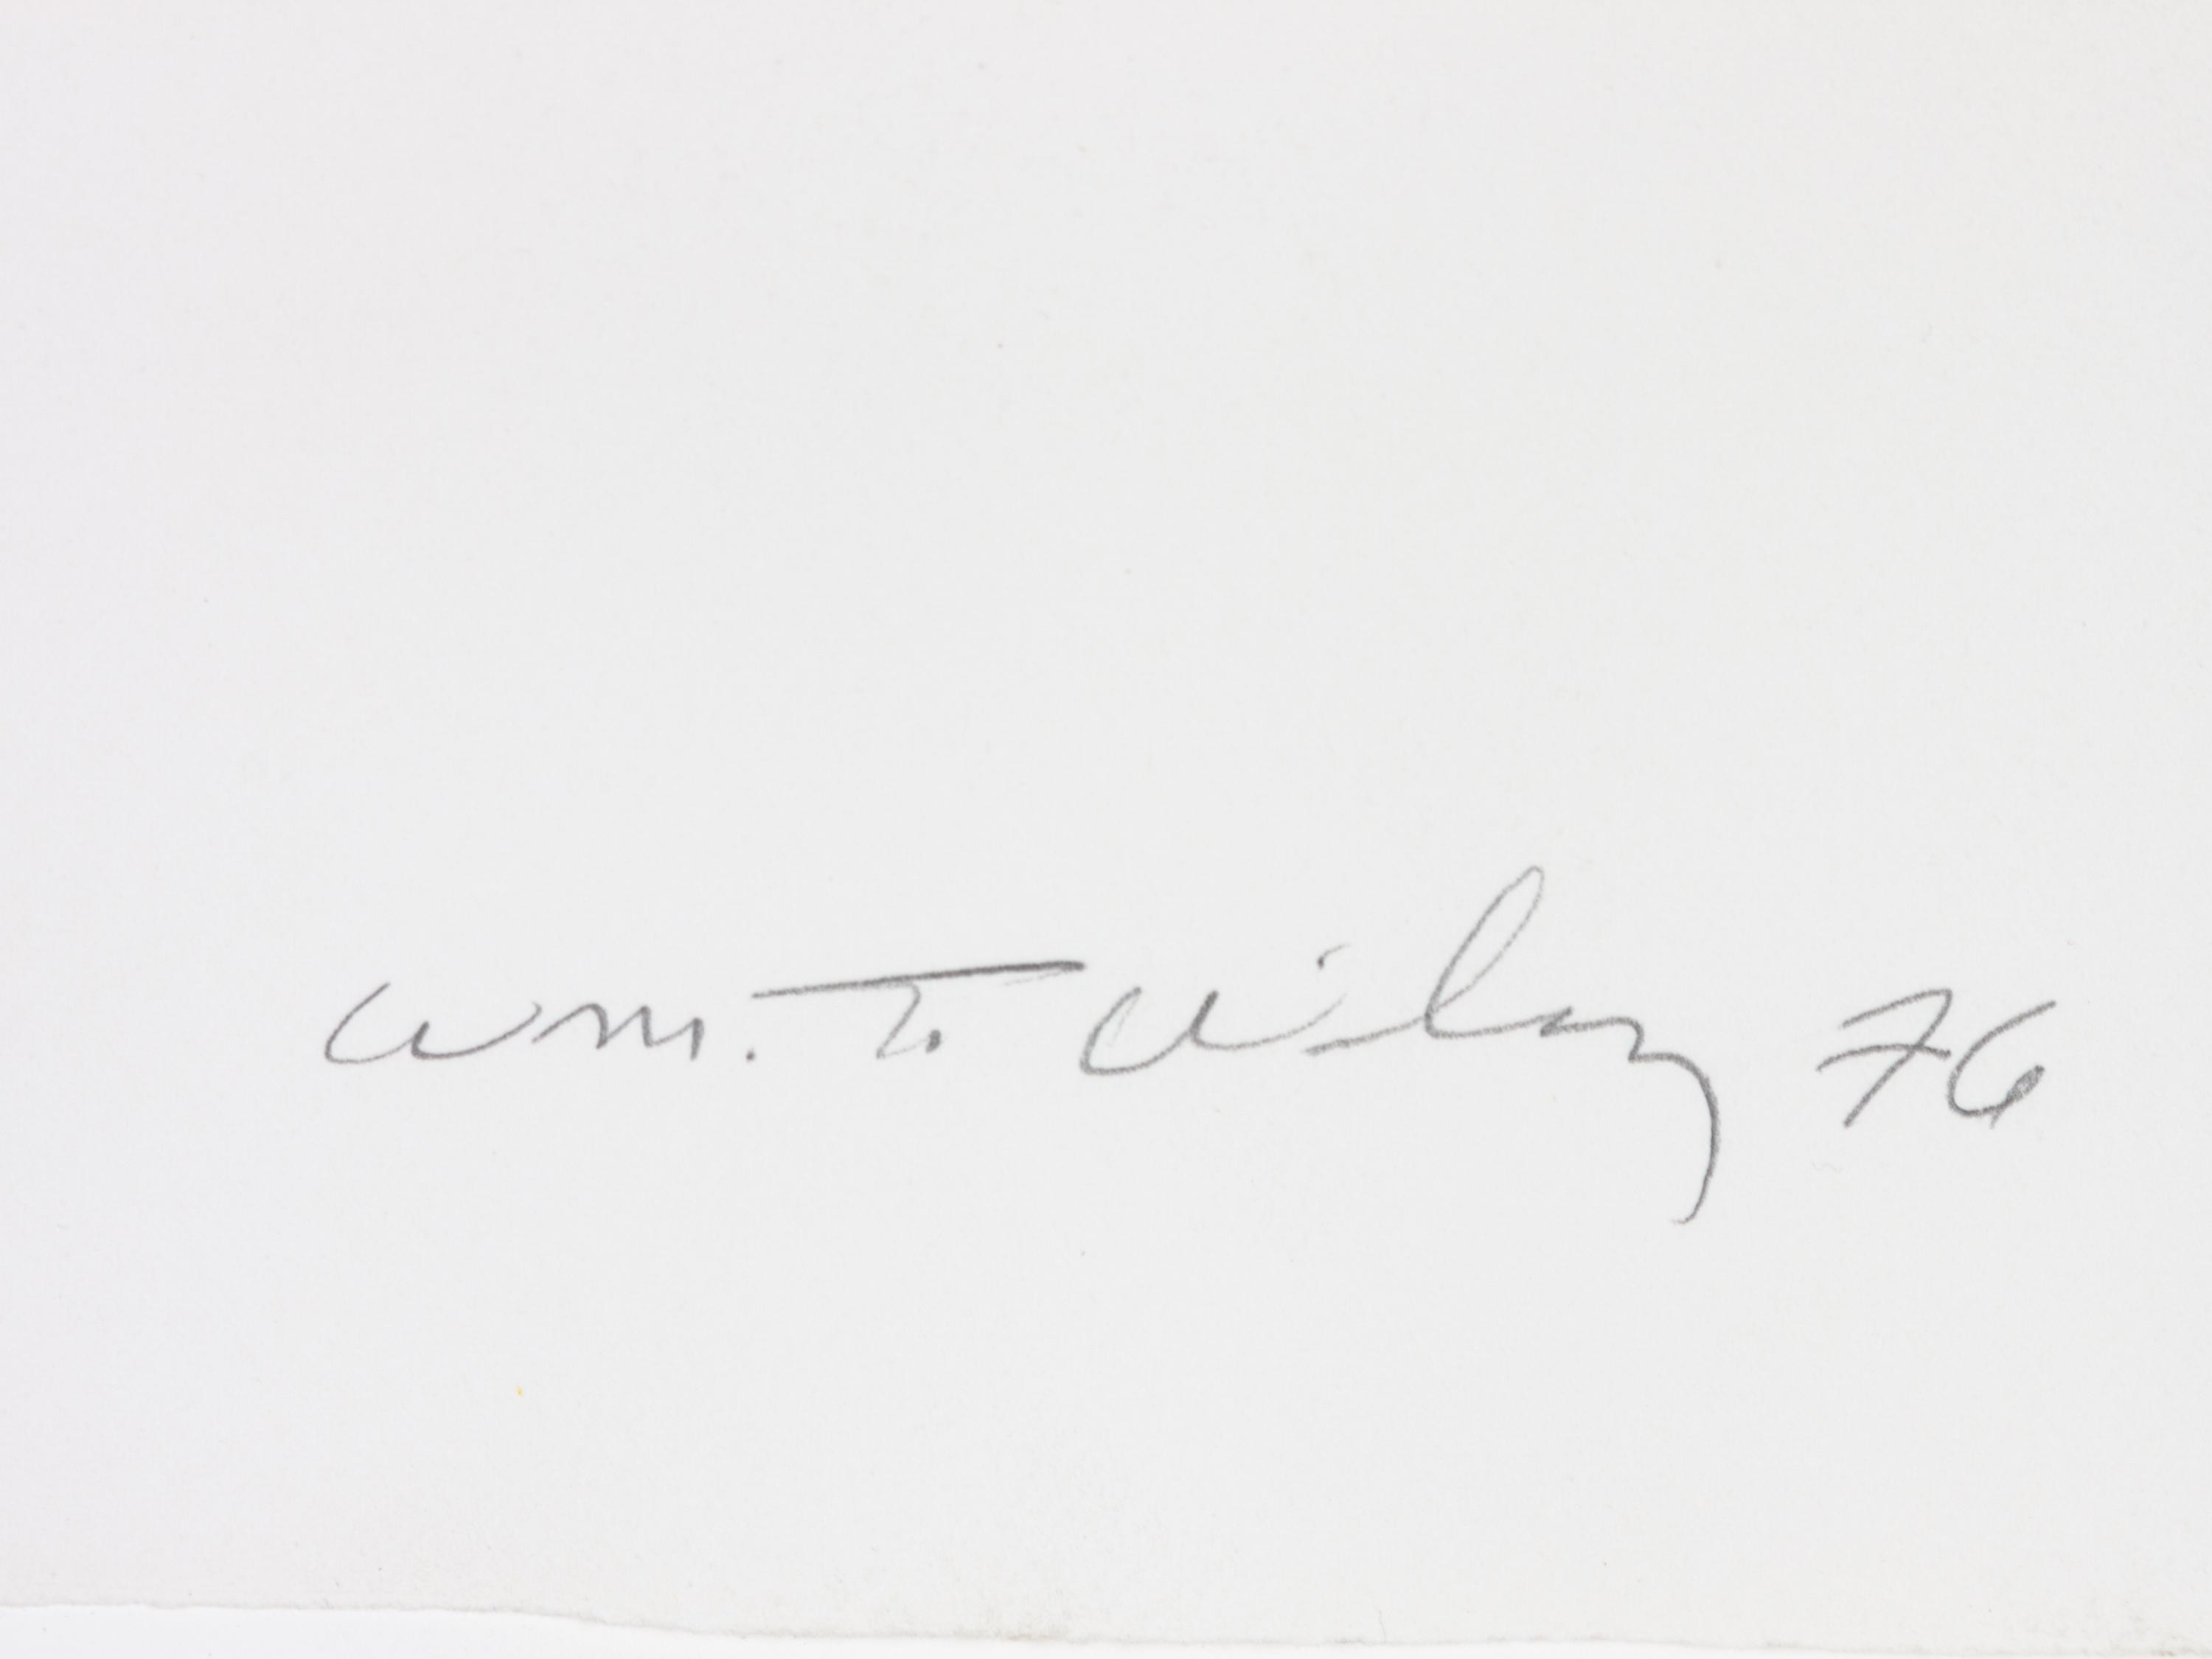 Wm. T. Wiley 76